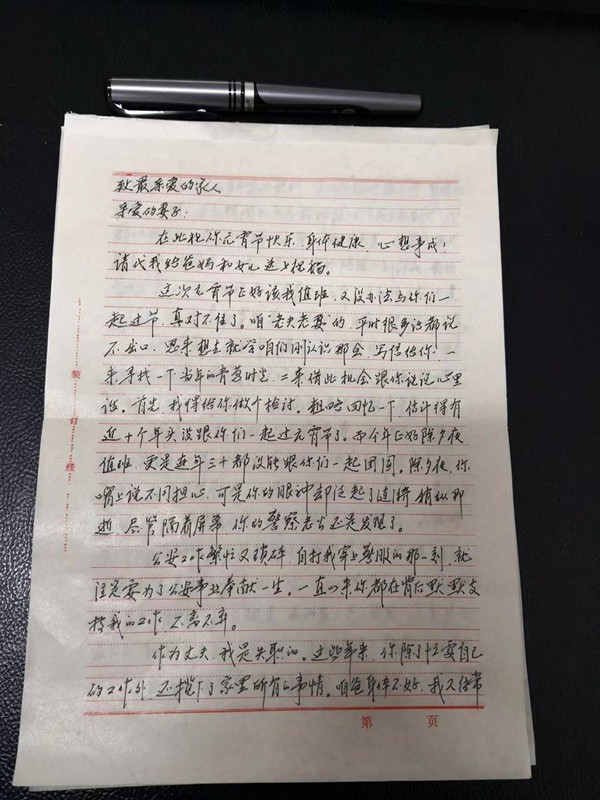 致最亲爱的家人
亲爱的妻子:
在此祝你元宵节快乐,身体健康,心想事成!
请代我给爸妈和女儿送上祝福。
这次元宵节正好该我值班,又没办法与你们一
起过节,真对不住了。咱“老夫老妻”的,平时很多话都说
不出口,思来想去就学咱们刚认识那会,写信给你,一
来寻找一下当年的青葱时光,二来借此机会跟你说说心里
话。首先,我得给你做个检讨。粗略回忆一下,估计得有
近十个年头没跟你们一起过元宵节了。而今年正好除夕夜
值班,更是连年三十都没能跟你们一起团圆。除夕夜,你
嘴上说不用担心,可是你的眼神却泛起了涟漪,稍纵即
逝,尽管隔着屏幕,你的警察老公还是发现了。
公安工作繁忙又琐碎,自打我穿上警服的那一刻,就
注定要为了公安事业奉献一生。一直以来你都在背后默默支
持我的工作,不离不弃。
作为丈夫,我是失职的。这些年来,你除了忙要自己
的工作外,还揽下了家里所有的事情。咱爸身体不好,我又经常
装
订
线
第 页